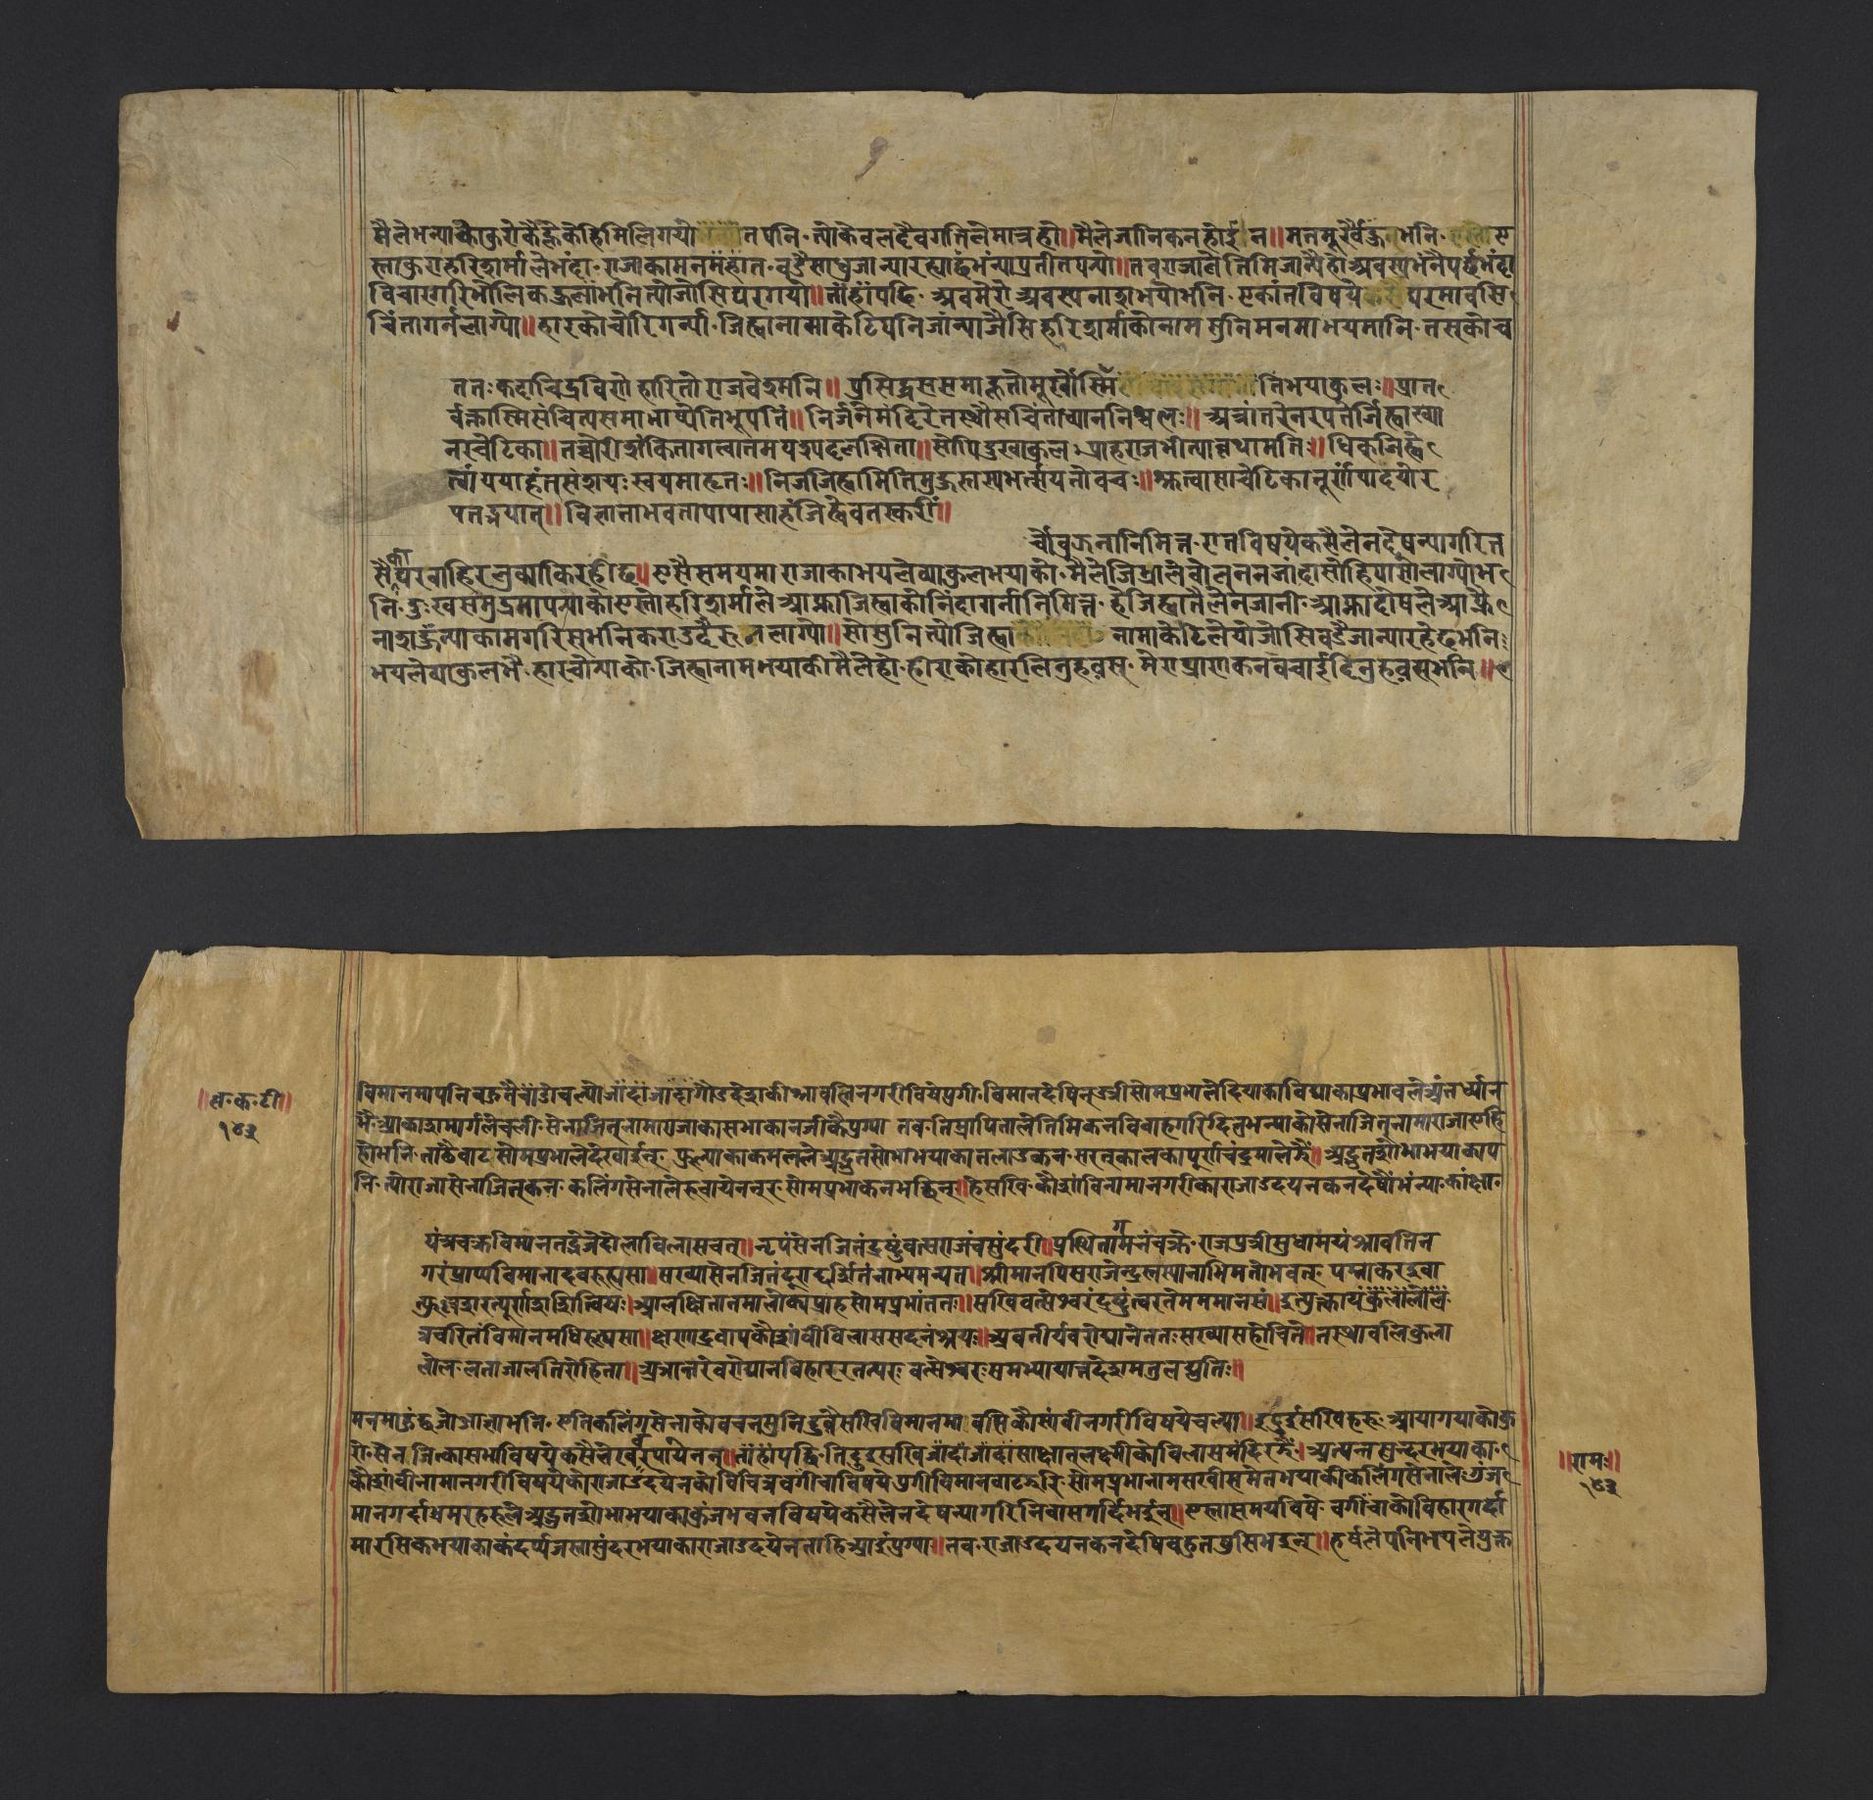 मैले भन्याका कुरो कैह्ले केहि मिलि गयो तपनि त्यो केवल दैवगतिले मात्र हो॥ मैले जानिकन होइन॥ मन मूर्खै हुं भनि
स्ता कुरा हरिशर्माले भंदा राजाका मनमहांत बुदैसाधु जान्या रह्याछ भंन्या प्रतीत पर्न्यो॥ तब राजाले तिमि जान्नै हौ अवस्य भंनै पर्छ भंदा
विचार गरि भोलि कहुंला भनि त्यो जोसि घर गयो॥ तांहांपछि अब मेरो अवस्य नाश भयो भनि एकांत विषये घरमा वसि
चिंता गर्न लाग्यो॥ हारको चोरि गर्न्या जिह्वा नामा केटि पनि जांन्या जैसि हरिशर्माको नाम सुनि मनमा भय मानि तसको च
ततः कदाचिद्रविणे हारितो राजवेश्मनि॥ प्रसिद्धस्स समाहूतो मूर्खोस्मि तिभयाकुलः॥ प्रात
र्वक्तास्मि संचित्य समाभाष्येति भूपतिं॥ निर्जने मंदिरे तस्थौ सचिंताध्याननिश्चलः॥ अत्रांतरे नरपतेर्जिह्वाख्या
नरचेटिका॥ तच्चौरी शंकिता गत्वा तमपश्यदलक्षिता॥ सोपि दुःखाकुलः प्राह राजभीत्यान्यथामतिः॥ धिक् जिह्वे
त्वां ययाहं तत्संशयः स्वयमाहृतः॥ निजजिह्वामिति मुहुस्तस्य भर्त्सयतो वचः॥ श्रुत्वा सा चेटिका तूर्णं पादयोर
पतद्भयात्॥ विज्ञाता भवता पापा साहं जिह्वैव तस्करी॥
र्चो वुझनानिमित्त रात विषये कसैले नदेषन्या गरि त
सैका घर बाहिर लुक्याकि रहीछ॥ उसै समयमा राजाका भयले व्याकुल भयाको मैले जिभ्राले बोलनन जांदा सोहि पासो लाग्यो भ
नि दुःखसमुद्रमा पर्‍याको एस्तो हरिशर्माले आफ्ना जिह्वाको निंदा गर्नानिमित्त हे जिह्वा तैले नजानी आफ्ना दोषले आफ्नै
नाश हुंन्या काम गरिस् भनि कराउदै लाग्यो॥ सो सुनि त्यो जिह्वा नामा केटिले यो जोसि वुदै जान्या रहेछ भनि
भयले व्याकुल भै हार चोर्‍याको जिह्वा नाम भयाकी मैले हो हीराको हार लिनुहवस् मेरा प्राणकन बचाई दिनुहवस् भनि॥
॥व॰क॰टी॥
१४३
विमानमा पनि बढ्नै चांडो चल्यो जांदा जांदा गौडदेशकी आवस्ति नगरी विषे पुगी विमान देषिन् उत्री सोमप्रभाले दियाका विद्याका प्रभावले अंतर्ध्यान
भै आकाशमार्गले चली सेनाजित् नामा राजाका सभाका नजीकै पुग्या तब ति प्रापिताले तिमिकन विवाह गरिदिनु भन्याको सेनाजित् नामा राजा एहि
हो भनि ताठै बाट सोमप्रभाले देखाईन् फुल्याका कमलले अद्भुत सोभा भयाका तलाउकन सरत्कालका पूर्ण चंद्रमाले झैं॥ अद्भुत शोभा भयाका प
नि त्यो राजा सेनाजित्कन कलिंगसेनाले रुचायेनन् र सोमप्रभाकन भंछिन्॥ हे सखि कौशांवि नामा नगरीका राजा उदयनकन देषौं भंन्या कांक्षा
यंत्रचक्रविमानं तद्भेजे दोलाविलासवत्॥ नृपं सेनजितं द्रष्टुं वत्सराजं च सुंदरी॥ प्रस्थिता गगनं चक्रे राजपुत्री सुधामयं आवस्तिन
गरं प्राप्य विमानादवरुह्य सा॥ सख्या सेनजितं दूराद्दर्शितं नाभ्यमन्यत॥ श्रीमानपि स राजेन्द्रस्तस्या नाभिमतोभवत् पद्माकर इवा
त्फुल्लः शरत्पूर्णशशित्विषः॥ आलक्षितानमालोक्य प्राह सोमप्रभां ततः॥ सखि वत्सेश्वरं द्रष्टुं त्वरते मम मानसं॥ इत्युक्त्वा यंत्रलीलोल
त्रचरितं विमानमधिरुह्य सा॥ क्षणादवाप कौशांवीविलाससदनं श्रयः॥ अवतीर्य वरोद्याने ततः सख्या सहोचिते॥ तस्थावलिकुला
लोल लताजालतिरोहिता॥ अत्रान्तरे वरोद्यानविहाररतत्परः वत्सेश्वरः समभ्यायात्तं देशमतुलद्युतिः॥
मनमा ठंछ जोआला भनि एति कलिंगसेनाको वचन सुनि दुवै सखि विमानमा वसि कौसांवी नगरी विषये चल्या॥ इ दुई सखिहरु आया गयाको कु
रो सेनजित्का सभा विषये कसैले खवर पायेनन्॥ तांहां पछि ति दुइ सखि जांदा जांदा साक्षात् लक्ष्मीको विलासमंदिर झैं॥ अत्यन्त सुन्दर भयाका
कौशांवी नामा नगरी विषये को राजा उदयेनको विचित्र वगीचा विषये पुगी विमान वाट झरि सोमप्रभा नाम सखी समेत भयाकी कलिंगसेनाले गुंज
मान गर्दा भ्रमरहरुले अद्भुत शोभा भयाका कुंजभवन विषये कसैले नदेषन्या गरि निवास गर्दि भईन्॥ एस्ता समय विषे वगींचाको विहार गर्दा
मा रसिक भयाका कंदर्प जस्ता सुंदर भयाका राजा उदयेन ताहि आई पुग्या॥ तब राजा उदयनकन देषि बहुत षुसि भईन्॥ हर्षले पनि भयले युक्त
॥रामः॥
१४३